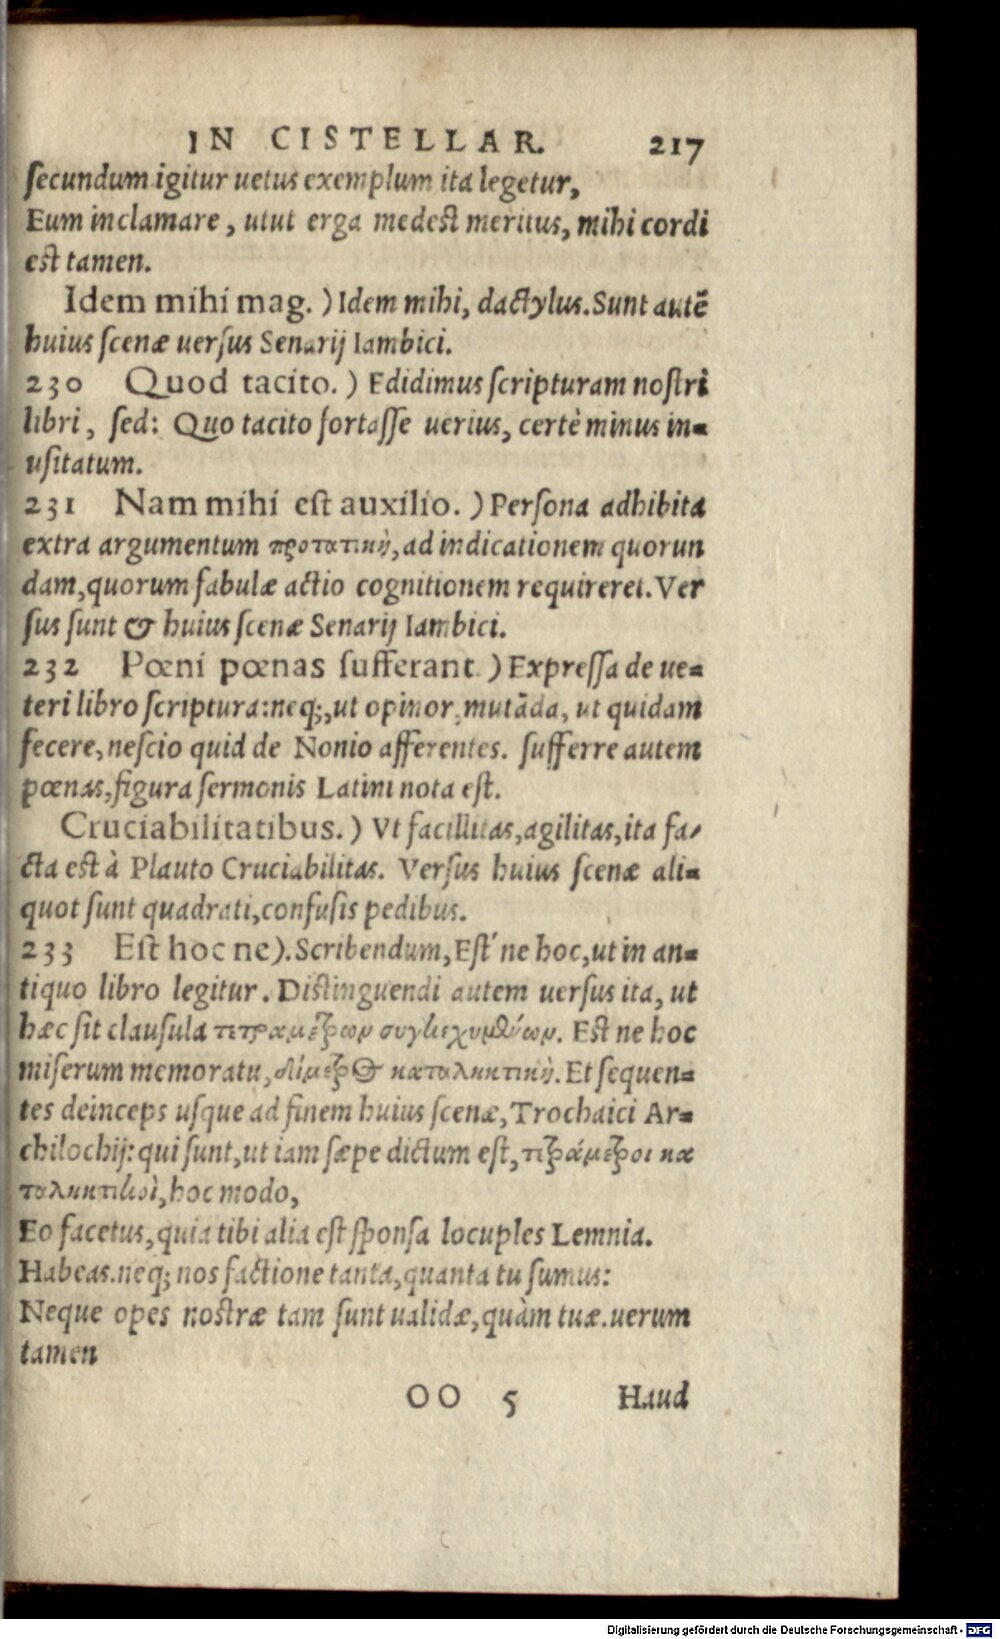 IN CISTELLAR. 217
ſecundum igitur uetus exemplum ita legetur,
Eum inclamare, utut erga medeſt meritus, mihi cordi
eſt tamen.
Idem mihi mag.) Idem mihi, dactylus. Sunt autē
huius ſcenæ uerſus Senarij Iambici.
230 Quod tacito.) Edidimus ſcripturam noſtri
libri, ſed: Quo tacito fortaſſe uerius, certè minus in-
uſitatum.
231 Nam mihi eſt auxilio.) Perſona adhibita
extra argumentum προτατικὴ, ad indicationem quorun
dam, quorum fabulæ actio cognitionem requireret. Ver
ſus ſunt & huius ſcenæ Senarij Iambici.
232 Pœni pœnas ſufferant.) Expreſſa de ue-
teri libro ſcriptura: neq;, ut opinor, mutāda, ut quidam
fecere, neſcio quid de Nonio afferentes. ſufferre autem
pœnas, figura ſermonis Latini nota eſt.
Cruciabilitatibus.) Vt facillitas, agilitas, ita fa-
cta eſt à Plauto Cruciabilitas. Verſus huius ſcenæ ali-
quot ſunt quadrati, confuſis pedibus.
233 Eſt hoc ne). Scribendum, Eſt' ne hoc, ut in an-
tiquo libro legitur. Diſtinguendi autem uerſus ita, ut
hæc ſit clauſula τετραμέτρων συγκεχυμένων. Eſt ne hoc
miſerum memoratu, δίμετρος καταληκτική. Et ſequen-
tes deinceps uſque ad finem huius ſcenæ, Trochaici Ar-
chilochij: qui ſunt, ut iam ſæpe dictum eſt, τετράμετροι κα
ταληκτικοὶ, hoc modo,
Eo facetus, quia tibi alia eſt ſponſa locuples Lemnia.
Habeas. neq; nos factione tanta, quanta tu ſumus:
Neque opes noſtræ tam ſunt ualidæ, quàm tuæ. uerum
tamen
OO 5 Haud
Digitalisierung gefördert durch die Deutsche Forschungsgemeinschaft - DFG